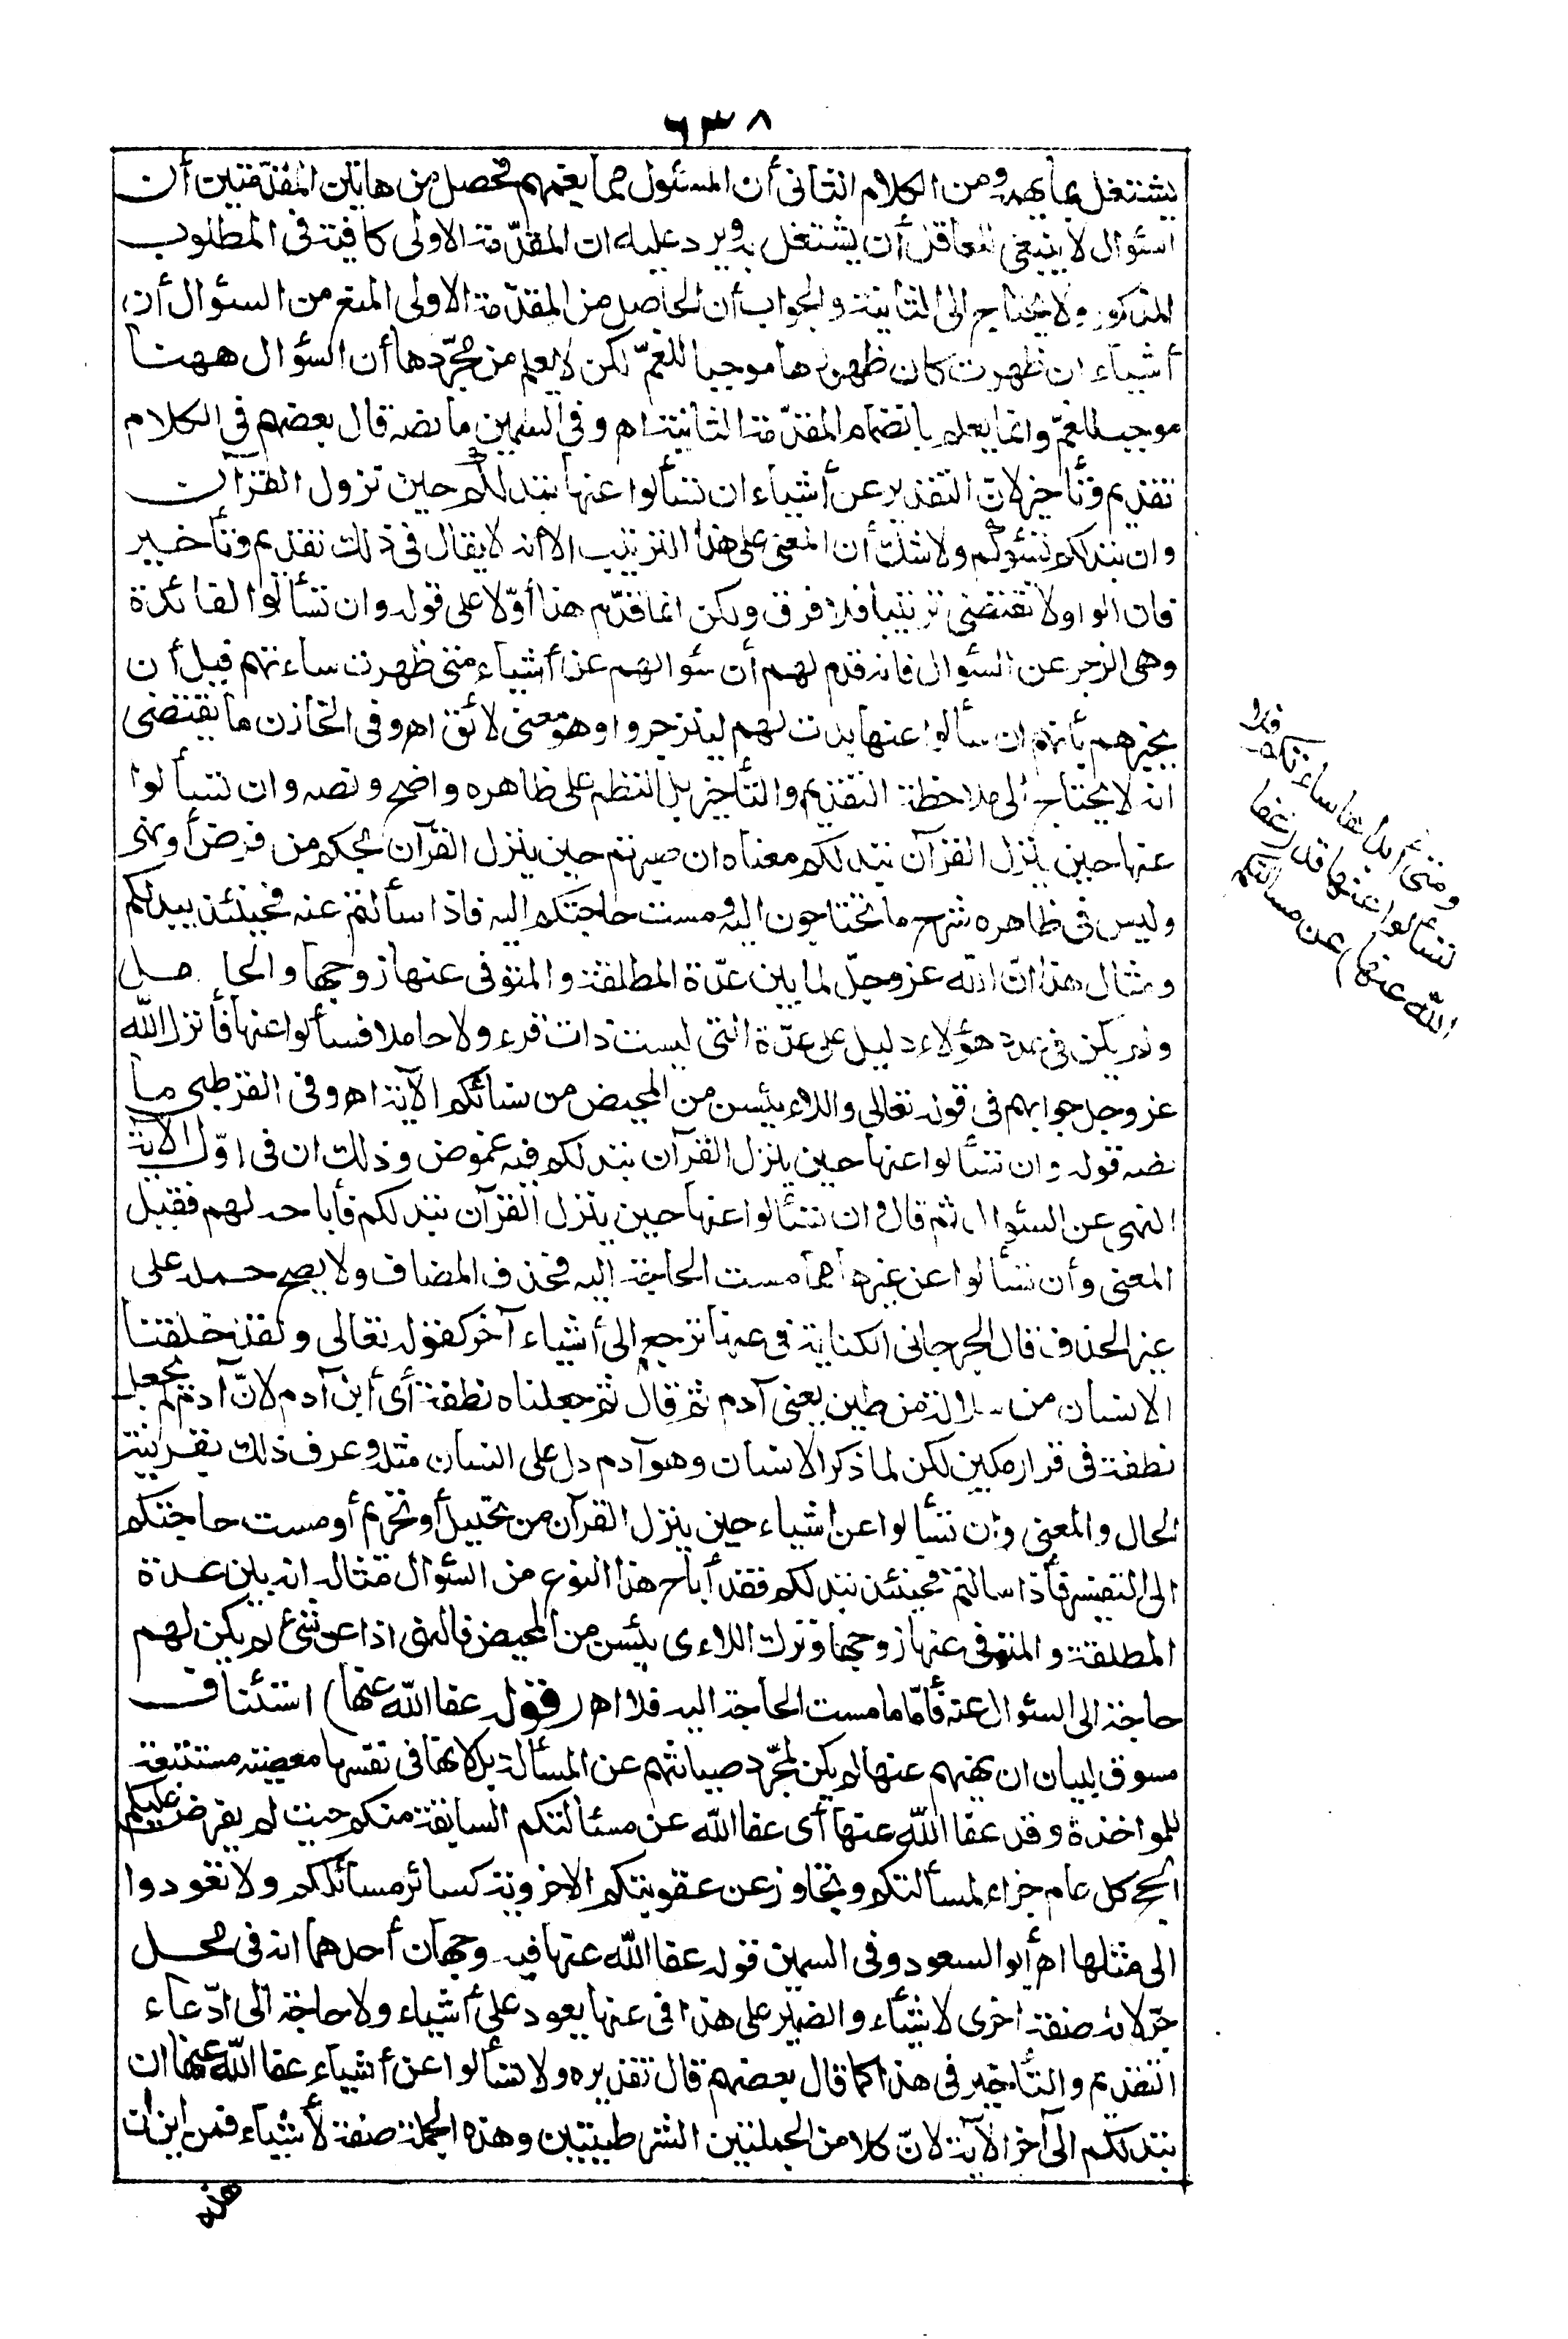 ٦٣٨
يشتغل بما يهمه ومن الكلام الثانى أن المسئول مما يغمهم فحصل من هاتين المقدّمتين أن
السئوال لا ينبغى للعاقل أن يشتغل به ويرد عليه ان المقدّمة الاولى كافية فى المطلوب
المذكور ولا يحتاج الى الثانية والجواب أن الحاصل من المقدّمة الاولى المنع من السئوال أن
أشياء ان ظهرت كان ظهورها موجبا للغمّ لكن لا يعلم من مجرّدها أن السؤال ههنا
موجب للغمّ وانما يعلم بانضمام المقدّمة الثانية اه وفى السمين ما نصه قال بعضهم فى الكلام
تقديم وتأخير لانّ التقدير عن أشياء ان تسألوا عنها تبد لكم حين نزول القرآن
وان تبد لكم تسؤكم ولا شك أن المعنى على هذا الترتيب الا انه لا يقال فى ذلك تقديم وتأخير
فان الواو لا تقتضى ترتيبا فلا فرق ولكن انما قدّم هذا أوّلا على قوله وان تسألوا لفائدة
وهى الزجر عن السئوال فانه قدم لهم أن سئوالهم عن أشياء متى ظهرت ساءتهم قبل أن
يخبرهم بأنهم ان سألوا عنها بدت لهم لينزجروا وهو معنى لائق اه وفى الخازن ما يقتضى
انه لا يحتاج الى ملاحظة التقديم والتأخير بل النظم على ظاهره واضح ونصه وان تسألوا
عنها حين ينزل القرآن تبد لكم معناه ان صبرتم حين ينزل القرآن بحكم من فرض أو نهى
وليس فى ظاهره شرح ما تحتاجون اليه ومست حاجتكم اليه فاذا سألتم عنه فحينئذ يبد لكم
ومثال هذا انّ الله عز وجلّ لما بين عدّة المطلقة والمتوفى عنها زوجها والحامل
ولم يكن فى عدد هؤلاء دليل على عدّة التى ليست ذات قرء ولا حاملا فسألوا عنها فأنزل الله
عز وجل جوابهم فى قوله تعالى واللاء يئسن من المحيض من نسائكم الآية اه وفى القرطبى ما
نصه قوله وان تسألوا عنها حين ينزل القرآن تبد لكم فيه غموض وذلك ان فى اوّل الآية
النهى عن السئوال ثم قال وان تسألوا عنها حين ينزل القرآن تبد لكم فأباحه لهم فقيل
المعنى وأن تسألوا عن غيرها مما مست الحاجة اليه فحذف المضاف ولا يصح حمله على
غير الحذف قال الجرجانى الكناية فى عنها ترجع الى أشياء آخر كقوله تعالى ولقد خلقنا
الانسان من سلالة من طين يعنى آدم ثم قال ثم جعلناه نطفة أى ابن آدم لانّ آدم لم يجعل
نطفة فى قرار مكين لكن لما ذكر الانسان وهو آدم دل على انسان مثله وعرف ذلك بقرينة
الحال والمعنى وان تسألوا عن اشياء حين ينزل القرآن من تحليل أو تحريم أو مست حاجتكم
الى التفسير فأذا سالتم فحينئذ تبد لكم فقد أباح هذا النوع من السئوال مثاله انه بين عدة
المطلقة والمتوفى عنها زوجها وترك اللاءى يئسن من المحيض فالنهى اذا عن شئ لم يكن لهم
حاجة الى السئوال عنه فأمّا ما مست الحاجة اليه فلا اه (قوله عفا الله عنها) استئناف
مسوق لبيان ان نهيهم عنها لم يكن لمجرّد صيانتهم عن المسألة بل لانها فى نفسها معصية مستتبعة
للمواخذة وقد عفا الله عنها أى عفا الله عن مسئالتكم السابقة منكم حيث لم يفرض عليكم
الحج كل عام جزاء لمسألتكم وتجاوز عن عقوبتكم الاخروية كسائر مسائلكم ولا تعودوا
الى مثلها اه أبو السعود وفى السمين قوله عفا الله عنها فيه وجهان أحدهما انه فى محل
جرّ لانه صفة اخرى لاشياء والضمير على هذا فى عنها يعود على أشياء ولا حاجة الى ادّعاء
التقديم والتأخير فى هذا كما قال بعضهم قال تقديره ولا تسألوا عن أشياء عفا الله عنها ان
تبد لكم الى آخر الآية لانّ كلا من الجملتين الشرطيتين وهذه الجملة صفة لأشياء فمن اين ان
هذه
ومتى أبداها ساءتكم فلا
تسألوا عنها قد (عفا
الله عنها) عن مسالتكم